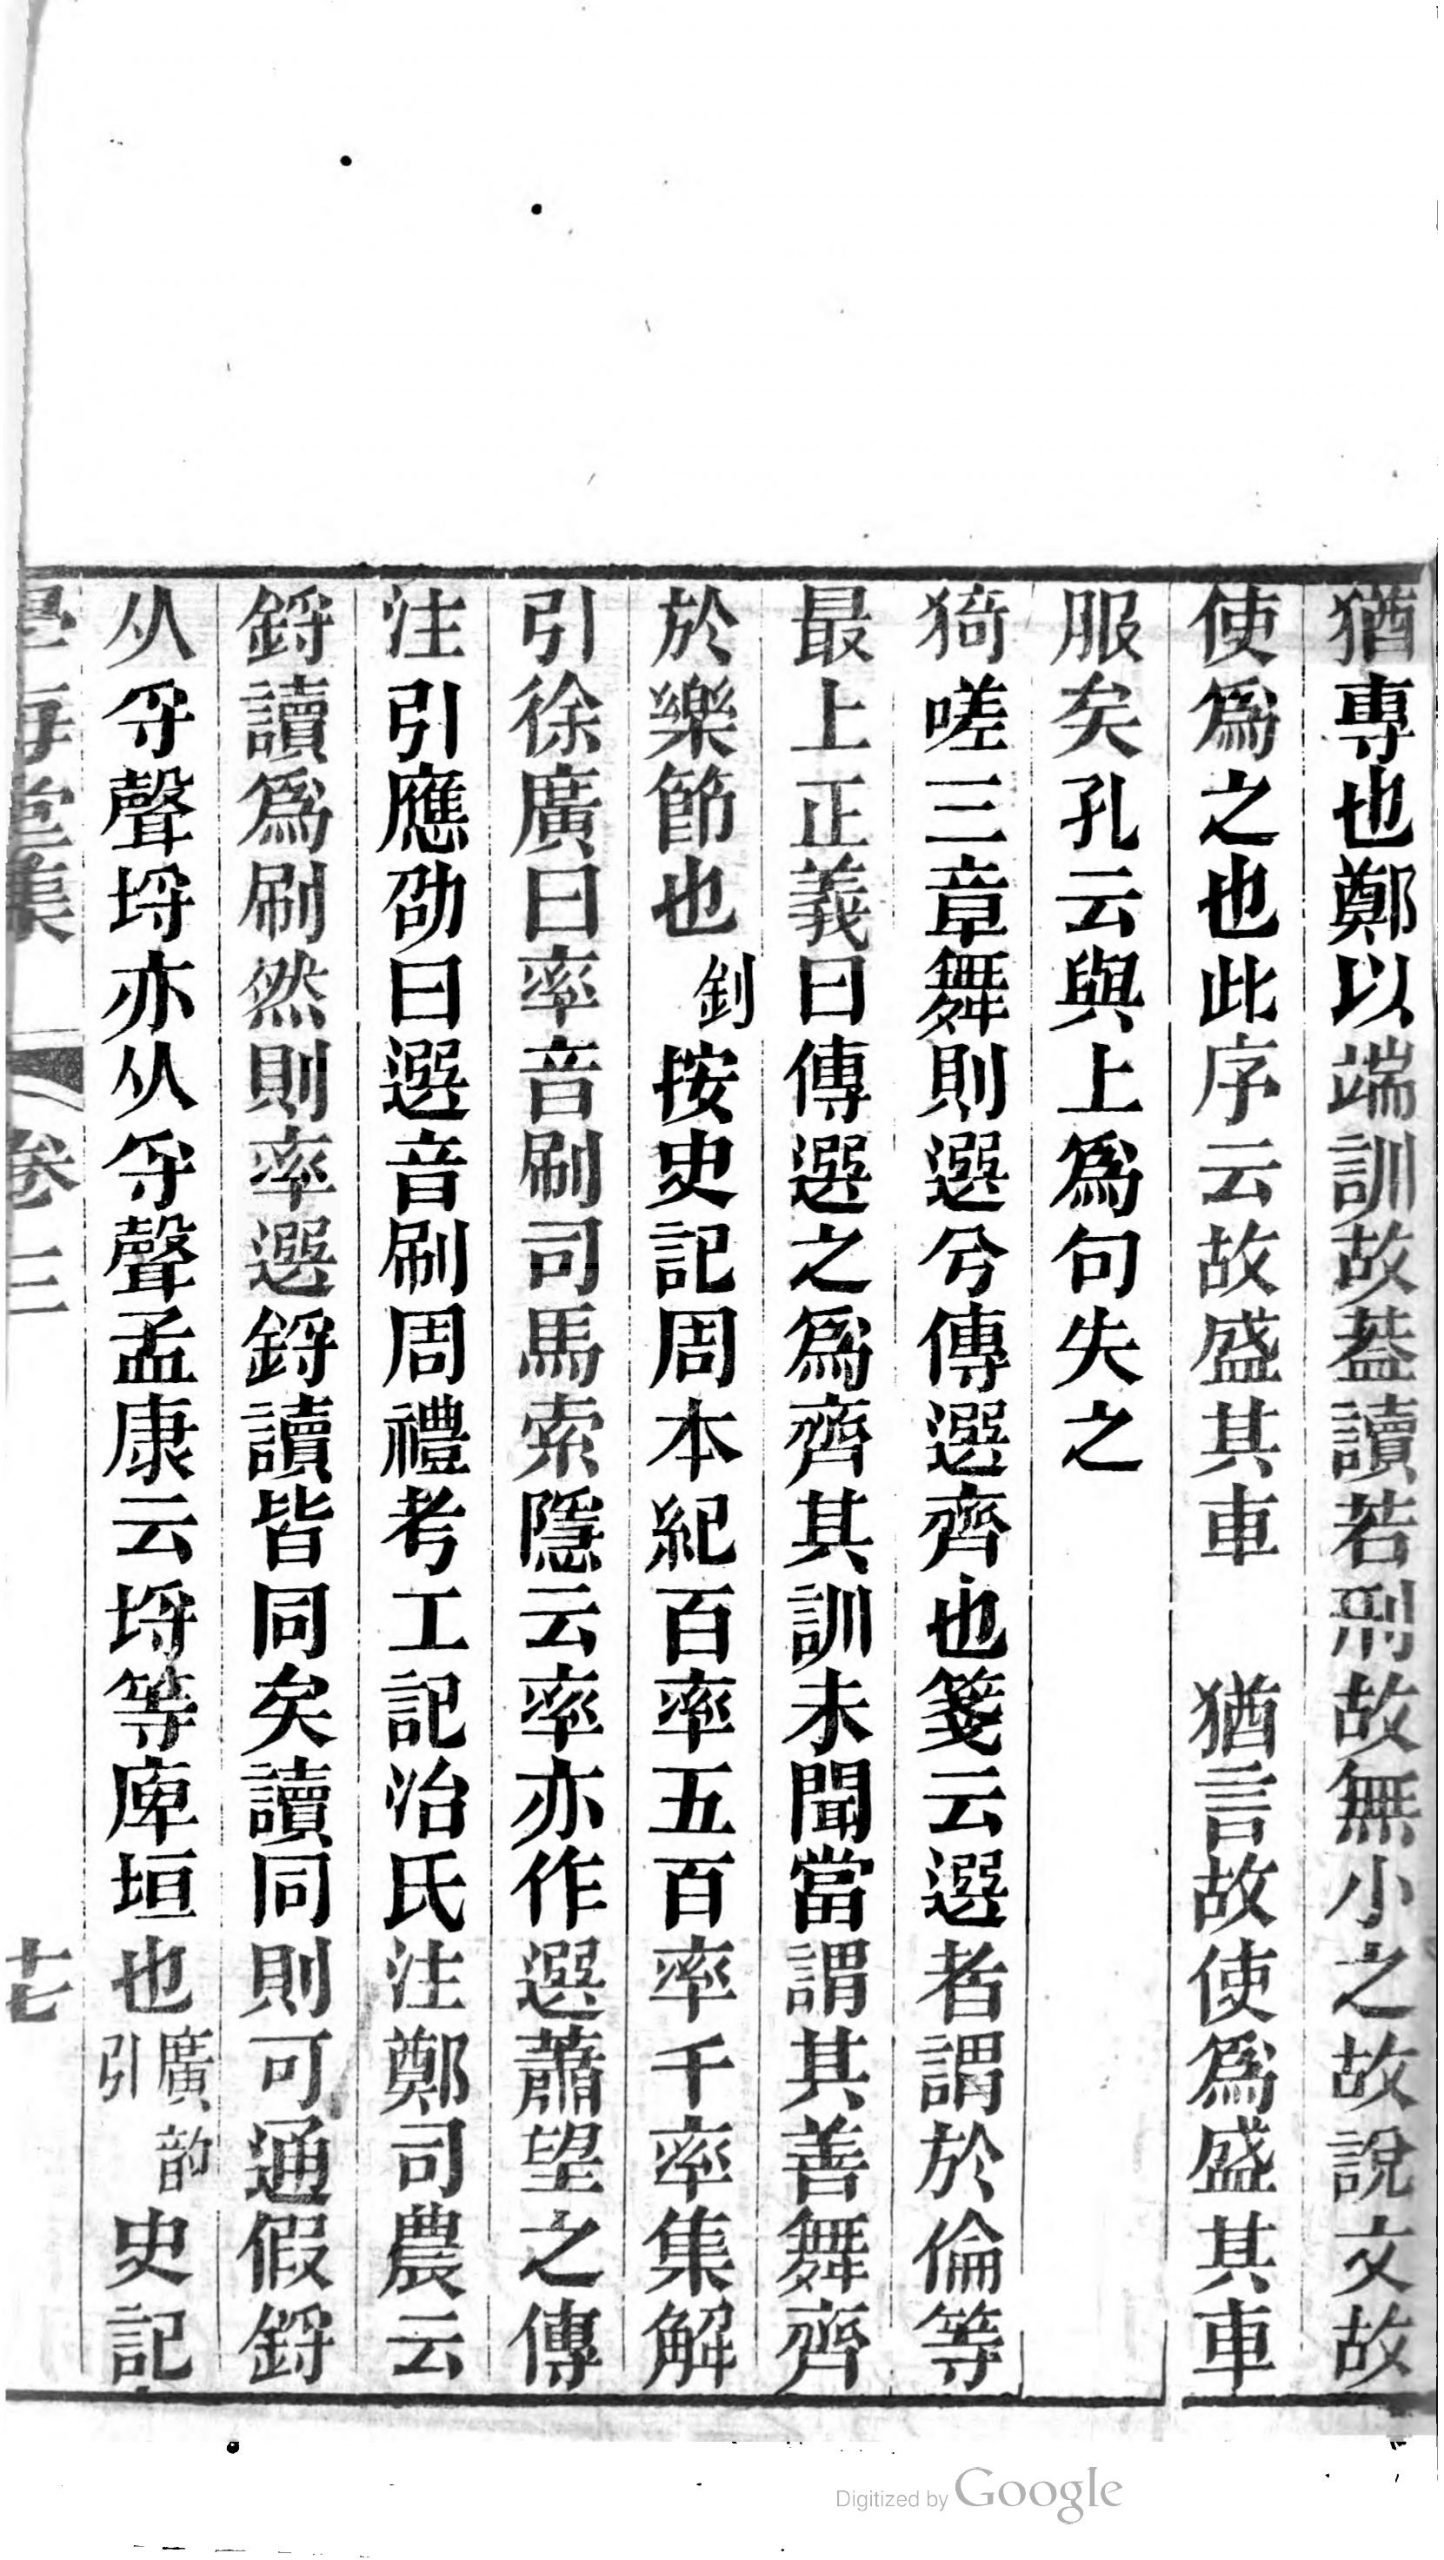 猶專也鄭以端訓故葢讀若耑故無小之故說文故
使爲之也此序云故盛其車　猶言故使爲盛其車
服矣孔云與上爲句失之
猗嗟三章舞則選兮傳選齊也箋云選者謂於倫等
最上正義曰傳選之爲齊其訓未聞當謂其善舞齊
於樂節也釗按史記周本紀百率五百率千率集解
引徐廣曰率音刷司馬索隱云率亦作選蕭望之傳
注引應劭曰選音刷周禮考工記冶氏注鄭司農云
鋝讀爲刷然則率選鋝讀皆同矣讀同則可通假鋝
从寽聲埒亦从寽聲孟康云埒等庳垣也廣韵引史記
學海堂集　卷三　十七
Digitized by Google